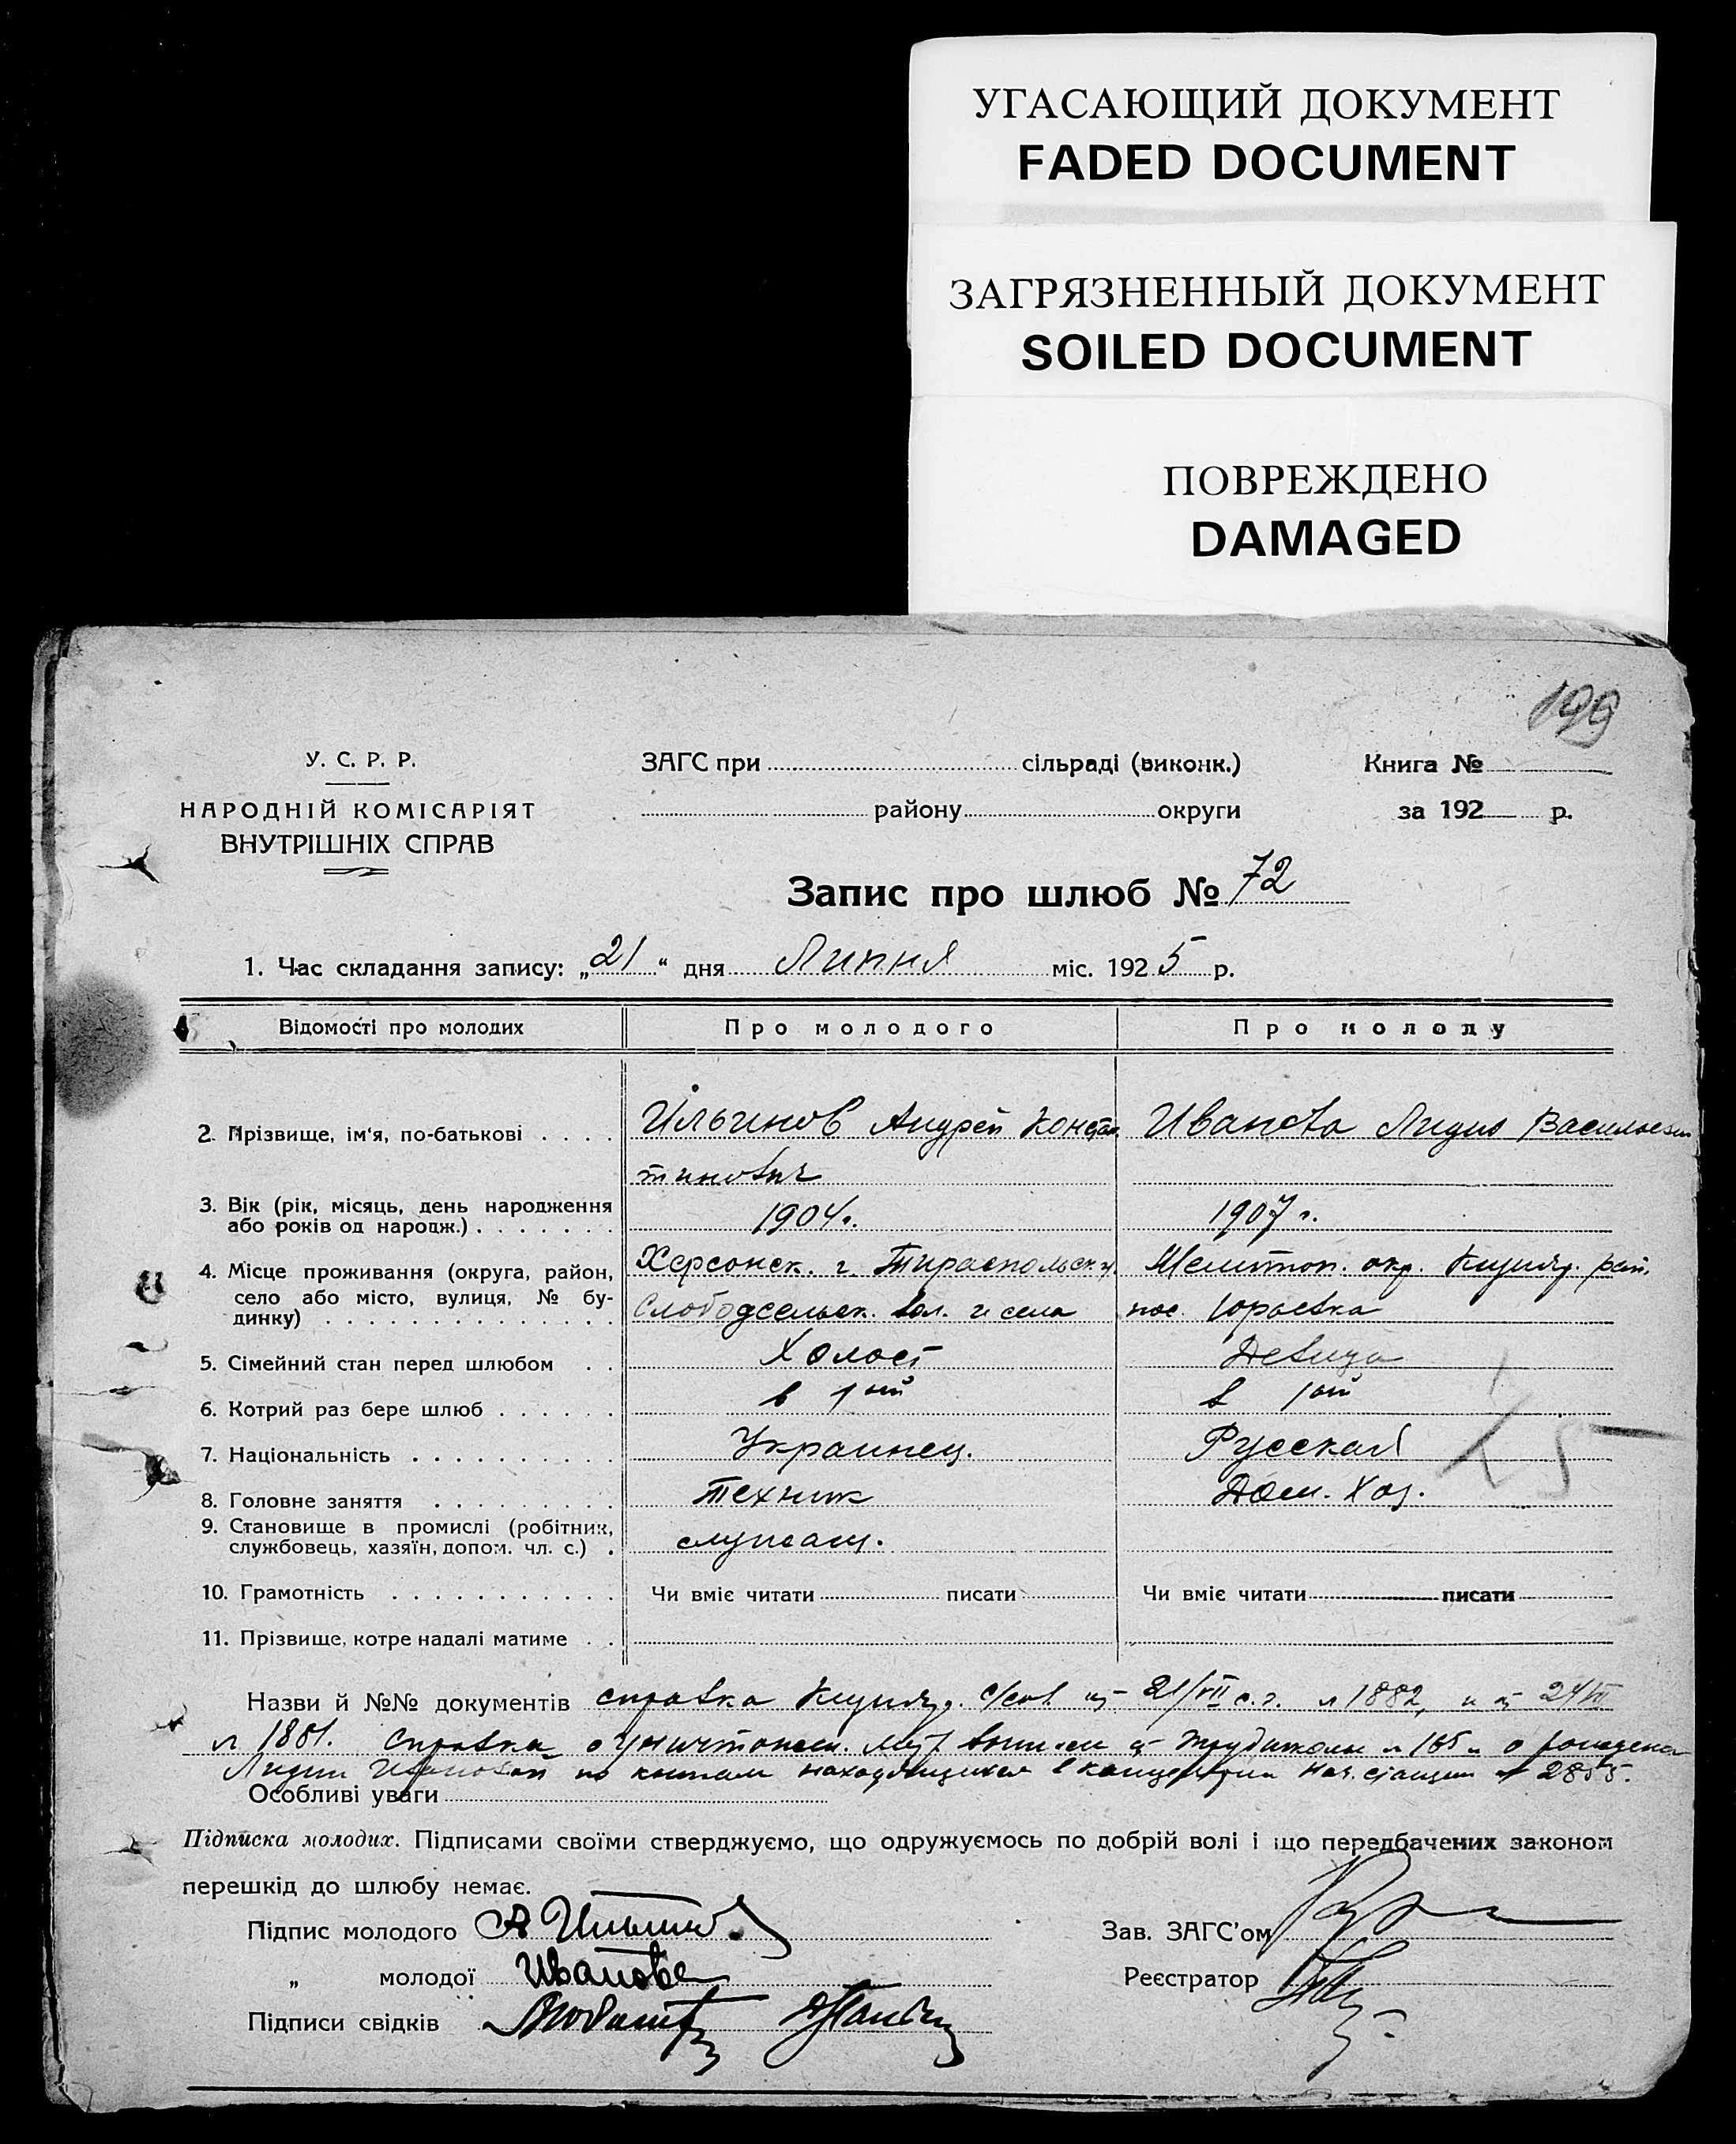 УГАСАЮЩИЙ ДОКУМЕНТ
FADED DOCUMENT
ЗАГРЯЗНЕННЫЙ ДОКУМЕНТ
SOILED DOCUMENT
ПОВРЕЖДЕНО
DAMAGED
199
У. С. Р. Р.
НАРОДНІЙ КОМІСАРІЯТ
ВНУТРІШНІХ СПРАВ
ЗАГС при сільраді (виконк.)
району округи
Книга №
за 192 р.
Запис про шлюб № 72
1. Час складання запису: „21“ дня Липня міс. 1925 р.
Відомості про молодих Про молодого Про молоду
2. Прізвище, ім'я, по-батькові . . . . Ильинов Андрей Констан Иванова Лидия Васильевн
тинович
3. Вік (рік, місяць, день народження
або років од народж.) . . . . . . . 1904 г. 1907 г.
4. Місце проживання (округа, район, Херсонск. г. Тираспольск у. Мелитоп. окр. рай.
село або місто, вулиця, № бу- Слободсельск. вол. и села пос. Юрьевка
динку) . . . . . . . . . . . . . .
5. Сімейний стан перед шлюбом . . Холост Девица
6. Котрий раз бере шлюб . . . . . . в 1ый в 1ый
7. Національність . . . . . . . . . . Украинец. Русская
8. Головне заняття . . . . . . . . . Техник Дом. Хоз.
9. Становище в промислі (робітник,
службовець, хазяїн, допом. чл. с.) . служащ.
10. Грамотність . . . . . . . . . . . Чи вміє читати писати Чи вміє читати писати
11. Прізвище, котре надалі матиме . .
Назви й №№ документів справка с/сов. от 21/VII с.г. № 1882, и от 24/VII
№ 1881. Справка о № 185 о рожден
Лидии Ивановой по книгам находящихся в нач. станции № 2855.
Особливі уваги
Підписка молодих. Підписами своїми стверджуємо, що одружуємось по добрій волі і що передбачених законом
перешкід до шлюбу немає.
Підпис молодого А Ильинов Зав. ЗАГС'ом
„ молодої Иванова Реєстратор
Підписи свідків